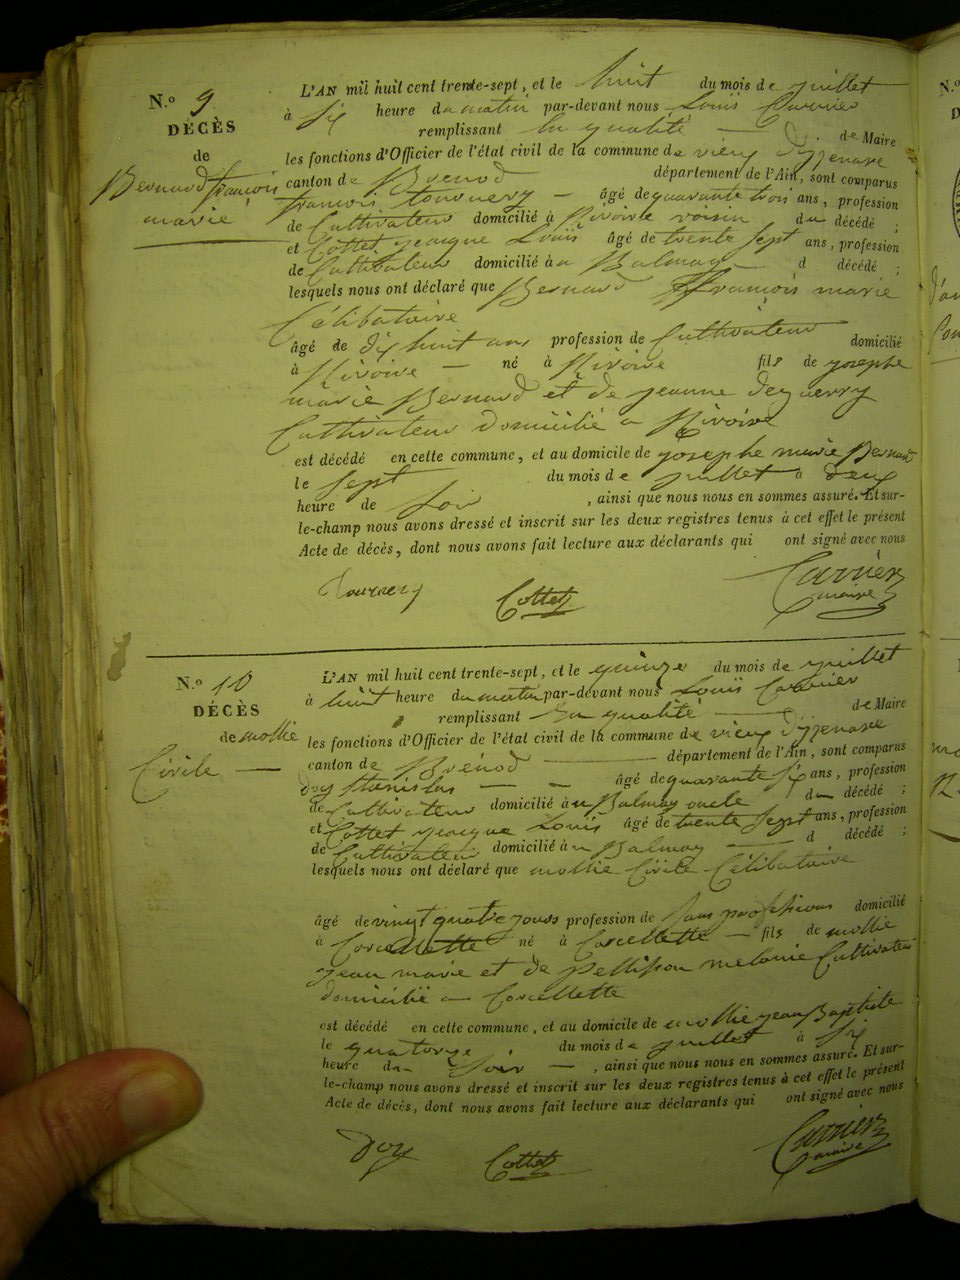 N.º 9
DÉCÈS
de
Bernard françois
marie
L'AN mil huit cent trente-sept, et le huit du mois de juillet
à six heure du matin par-devant nous Louis Carrier
remplissant en qualité de Maire
les fonctions d'Officier de l'état civil de la commune de vieux d'izenave
canton de Brenod département de l'Ain, sont comparus
françois tournery âgé de quarante trois ans, profession
de Cultivateur domicilié à Rivoire voisin du décédé ;
et Cottet jacque Louis âgé de trente sept ans, profession
de Cultivateur domicilié à u Balmay d décédé ;
lesquels nous ont déclaré que Bernard françois marie
Célibataire
âgé de dix huit ans profession de Cultivateur domicilié
à Rivoire né à Rivoire fils de josephe
marie Bernard et de jeanne deguerry
Cultivateur domicilié a Rivoire
est décédé en cette commune, et au domicile de josephe marie Bernard
le sept du mois de juillet à deux
heure de soir , ainsi que nous nous en sommes assuré. Et sur-
le-champ nous avons dressé et inscrit sur les deux registres tenus à cet effet le présent
Acte de décès, dont nous avons fait lecture aux déclarants qui ont signé avec nous
Tournery Cottet Carrier
maire
N.º 10
DÉCÈS
de mollie
Civile
L'AN mil huit cent trente-sept, et le quinze du mois de juillet
à huit heure du matin par-devant nous Louis Carrier
remplissant en qualité de Maire
les fonctions d'Officier de l'état civil de la commune de vieux d'izenave
canton de Brenod département de l'Ain, sont comparus
doy stanislas âgé de quarante six ans, profession
de Cultivateur domicilié à u Balmay oncle du décédé ;
et Cottet jacque Louis âgé de trente sept ans, profession
de Cultivateur domicilié à u Balmay d décédé ;
lesquels nous ont déclaré que mollie Civile Célibataire
âgé de vingt quatre jours profession de sans profession domicilié
à Corcellette né à Corcellette fils de mollie
jean marie et de pellisson melanie Cultivateur
domicilié a Corcellette
est décédé en cette commune, et au domicile de mollie jean Baptiste
le quatorze du mois de juillet à six
heure du soir , ainsi que nous nous en sommes assuré. Et sur-
le-champ nous avons dressé et inscrit sur les deux registres tenus à cet effet le présent
Acte de décès, dont nous avons fait lecture aux déclarants qui ont signé avec nous
Doy Cottet Carrier
maire